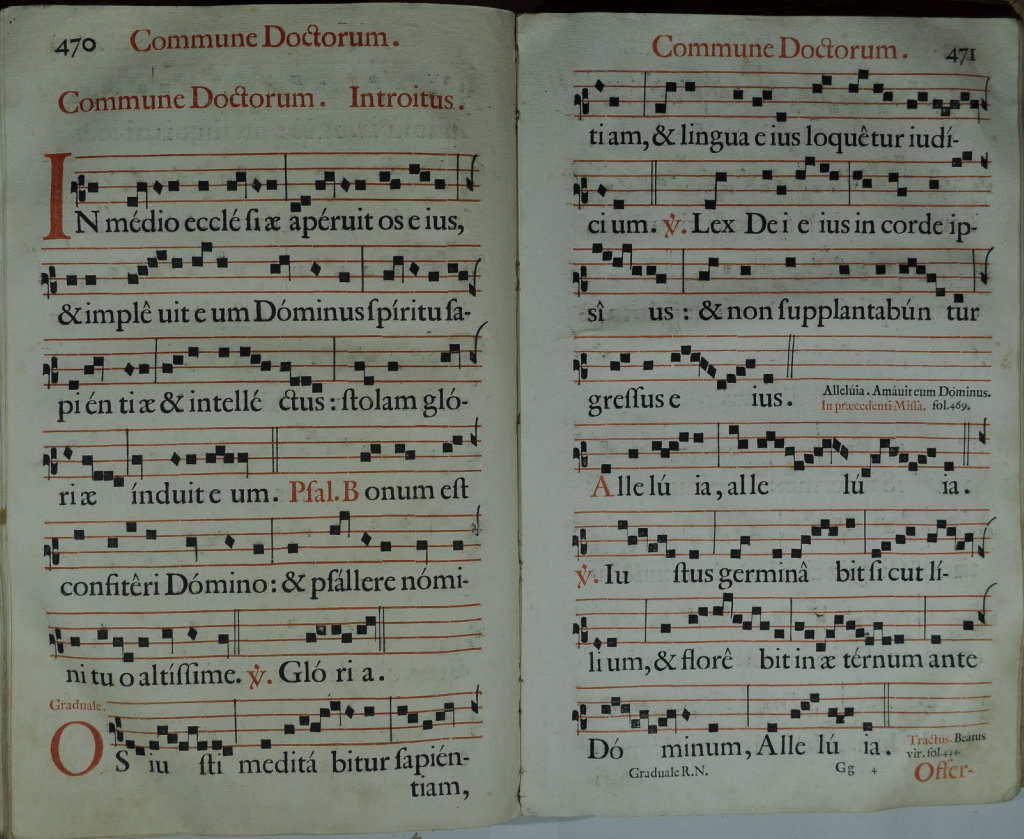 470 Commune Doctorum.
Commune Doctorum. Introitus.
IN médio ecclé ſi æ apéruit os e ius,
& implê uit e um Dóminus ſpíritu ſa-
pi én ti æ & intellé ctus : ſtolam gló-
ri æ índuit e um. Pſal. B onum eſt
confitêri Dómino : & pſállere nómi-
ni tu o altíſſime. ℣. Gló ri a.
Graduale.
OS iu ſti meditá bitur ſapién-
tiam,
Commune Doctorum. 471
ti am, & lingua e ius loquêtur iudí-
ci um. ℣. Lex De i e ius in corde ip-
sî us : & non ſupplantabún tur
greſſus e ius. Allelúia. Amáuit eum Dóminus.
In præcedenti Miſſa. fol. 469.
Alle lú ia, alle lú ia.
℣. Iu ſtus germinâ bit ſi cut lí-
li um, & florê bit in æ térnum ante
Dó minum, Alle lú ia. Tractus. Beátus
vir. fol. 444.
Graduale R.N. Gg 4 Offer-